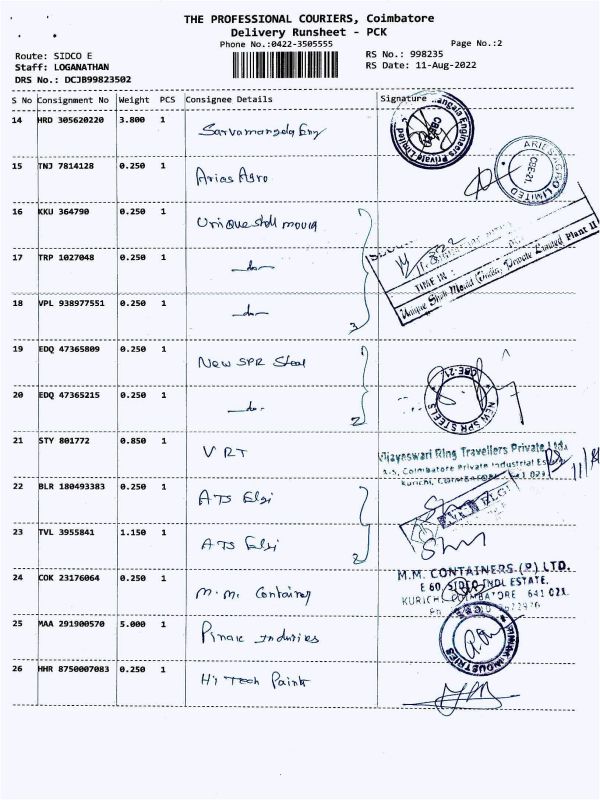 THE PROFESSIONAL COURIERS, Coimbatore
Delivery Runsheet - PCK
Phone No.:0422-3505555
Page No.:2
Route: SIDCO E
RS No.: 998235
Staff: LOGANATHAN
RS Date: 11-Aug-2022
DRS No.: DCJB99823502
S No Consignment No Weight PCS Consignee Details Signature
14 HRD 305620220 3.800 1 Sarvamangala Eng
Engineers Private Limited
15 TNJ 7814128 0.250 1 Aries Agro
ARIES AGRO LIMITED
CBE-21.
16 KKU 364790 0.250 1 Unique shell mould
17 TRP 1027048 0.250 1 -do-
TIME IN :
Unique Shell Mould (India) Private Limited Plant II
18 VPL 938977551 0.250 1 -do-
3
19 EDQ 47365809 0.250 1 New SPR Steel
CBE-21
NEW SPR STEELS
20 EDQ 47365215 0.250 1 -do-
2
21 STY 801772 0.850 1 VRT
Vijayeswari Ring Travellers Private Ltd.
A-5, Coimbatore Private Industrial Estate
22 BLR 180493383 0.250 1 ATS Elgi
23 TVL 3955841 1.150 1 ATS Elgi
2
24 COK 23176064 0.250 1 M.M. Container
M.M. CONTAINERS (P) LTD.
E 60, SIDCO INDL ESTATE,
KURICHI, COIMBATORE 641 021.
25 MAA 291900570 5.000 1 Pinak Industries
PINAK INDUSTRIES
26 HHR 8750007083 0.250 1 Hi Tech Paints